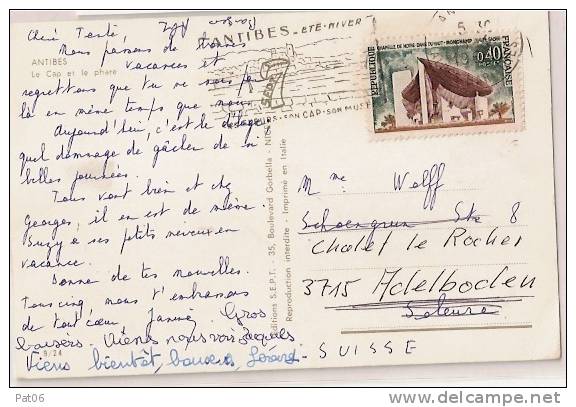 ANTIBES
Le Cap et le phare
Nous passons de bonnes
vacances et
regrettons que tu ne sois pas
là en même temps que nous.
Aujourd'hui, c'est le déluge
quel dommage de gâcher de si
belles journées.
Tous vont bien et chez
Georges, il en est de même.
Suzy a ses petits neveux en
vacance.
Donne de tes nouvelles.
Tous cinq nous t'embrassons
de tout cœur. Janine. Gros
baisers. Viens nous voir Jacques
Viens bientôt, baisers, Gérard.
9/24
Editions S.E.P.T. - 35, Boulevard Gorbella - NICE
Reproduction interdite - Imprimé en Italie
ANTIBES - ETE-HIVER
SON CAP - SON MUSEE
CHAPELLE DE NOTRE-DAME DU HAUT - RONCHAMP
REPUBLIQUE FRANÇAISE
0,40
POSTES
Mme Wolff
8
Chalet le Rocher
3715 Adelboden
Soleure
SUISSE
Pat06
http://www.delcampe.net